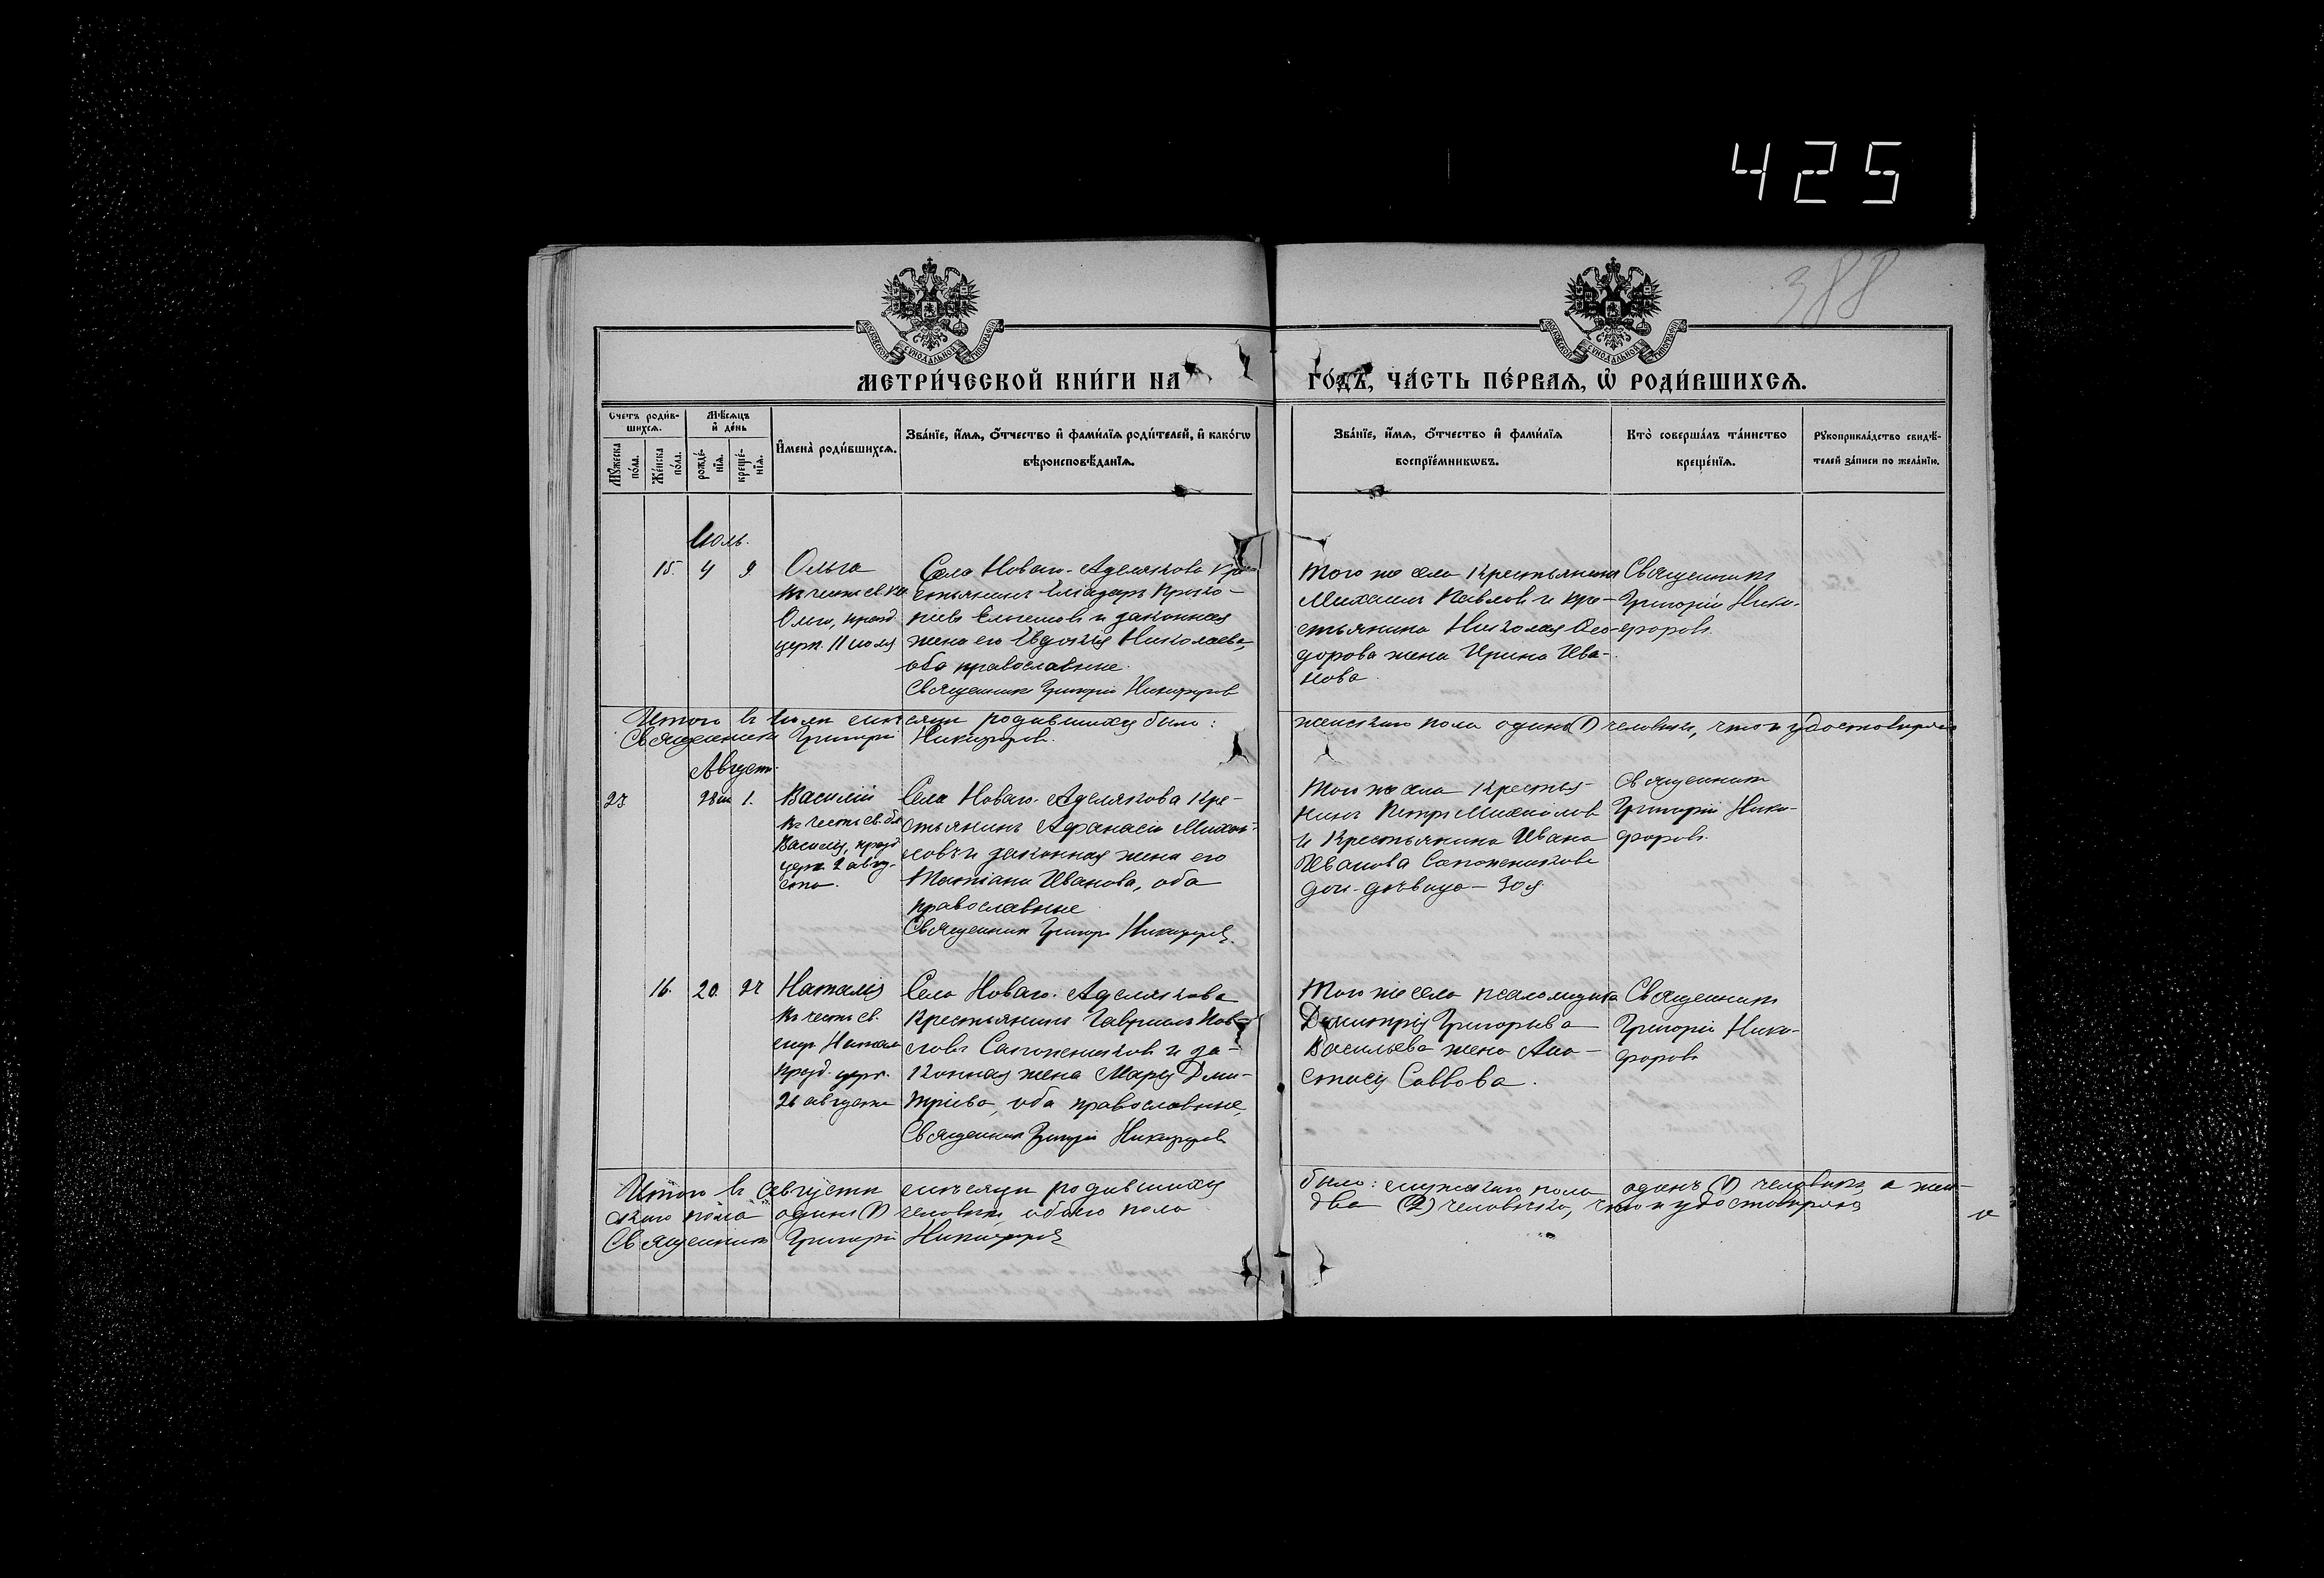 425
388
МЕТРИ́ЧЕСКОЙ КНИ́ГИ НА ГО́ДЪ, ЧА́СТЬ ПЕ́РВАЯ, Ѡ҆ РОДИ́ВШИХСЯ.
Счетъ роди́в-
шихся.
Мѣ́сяцъ
и҆ де́нь
Му́жеска
по́ла.
Же́нска
по́ла.
рожде́-
нїя.
креще́-
нїя.
И҆мена̀ роди́вшихся.
Зва́нїе, и҆́мя, ѻ҆́тчество и҆ фами́лїя роди́телей, и҆ како́гѡ
вѣроисповѣ́данїя.
Зва́нїе, и҆́мя, ѻ҆́тчество и҆ фами́лїя
воспрїе́мникѡвъ.
Кто̀ соверша́лъ та́инство
креще́нїя.
Рꙋкоприкла́дство свидѣ́-
телей за́писи по жела́нїю.
Іюль.
15. 4 9.
Ольга
въ честь св. кн.
Ольги, празд.
церк. 11 іюля
Села Новаго-Аделякова кре-
стьянинъ Проко-
піевъ и законная
жена его Евдокія Николаева,
оба православные.
Священникъ Григорій Никифоровъ
Того же села крестьянинъ
Михаилъ Павловъ и кре-
стьянина Николая Ѳео-
дорова жена Ирина Ива-
нова.
Священникъ
Григорій Ники-
форовъ.
Итого въ іюлѣ мѣсяцѣ родившихся было: женскаго пола одинъ (1) человѣкъ, что и удостовѣряю
Священникъ Григорій Никифоровъ.
Августъ.
23 28 іюл 1.
Василій
въ честь св. бл.
Василія, празд.
церк. 2 авгу-
ста.
Села Новаго-Аделякова кре-
стьянинъ Аѳанасій Михаи-
ловъ и законная жена его
Татіана Иванова, оба
православные
Священникъ Григорій Никифоровъ.
Того же села крестья-
нинъ Петръ Михайловъ
и крестьянина Ивана
Иванова Сапожникова
дочь-дѣвица Зоя.
Священникъ
Григорій Ники-
форовъ.
16. 20. 27
Наталія
въ честь св.
муч. Натал.
празд. церк.
26 августа
Села Новаго-Аделякова
крестьянинъ Гавріилъ Пав-
ловъ Сапожниковъ и за-
конная жена Марія Дми-
тріева, оба православные,
Священникъ Григорій Никифоровъ
Того же села псаломщика
Димитрія Григорьева
Васильева жена Ана-
стасія Саввова.
Священникъ
Григорій Ники-
форовъ
Итого въ августѣ мѣсяцѣ родившихся было: мужскаго пола одинъ (1) человѣкъ, а жен-
скаго пола одинъ (1) человѣкъ, обоего пола два (2) человѣка, что и удостовѣряю
Священникъ Григорій Никифоровъ